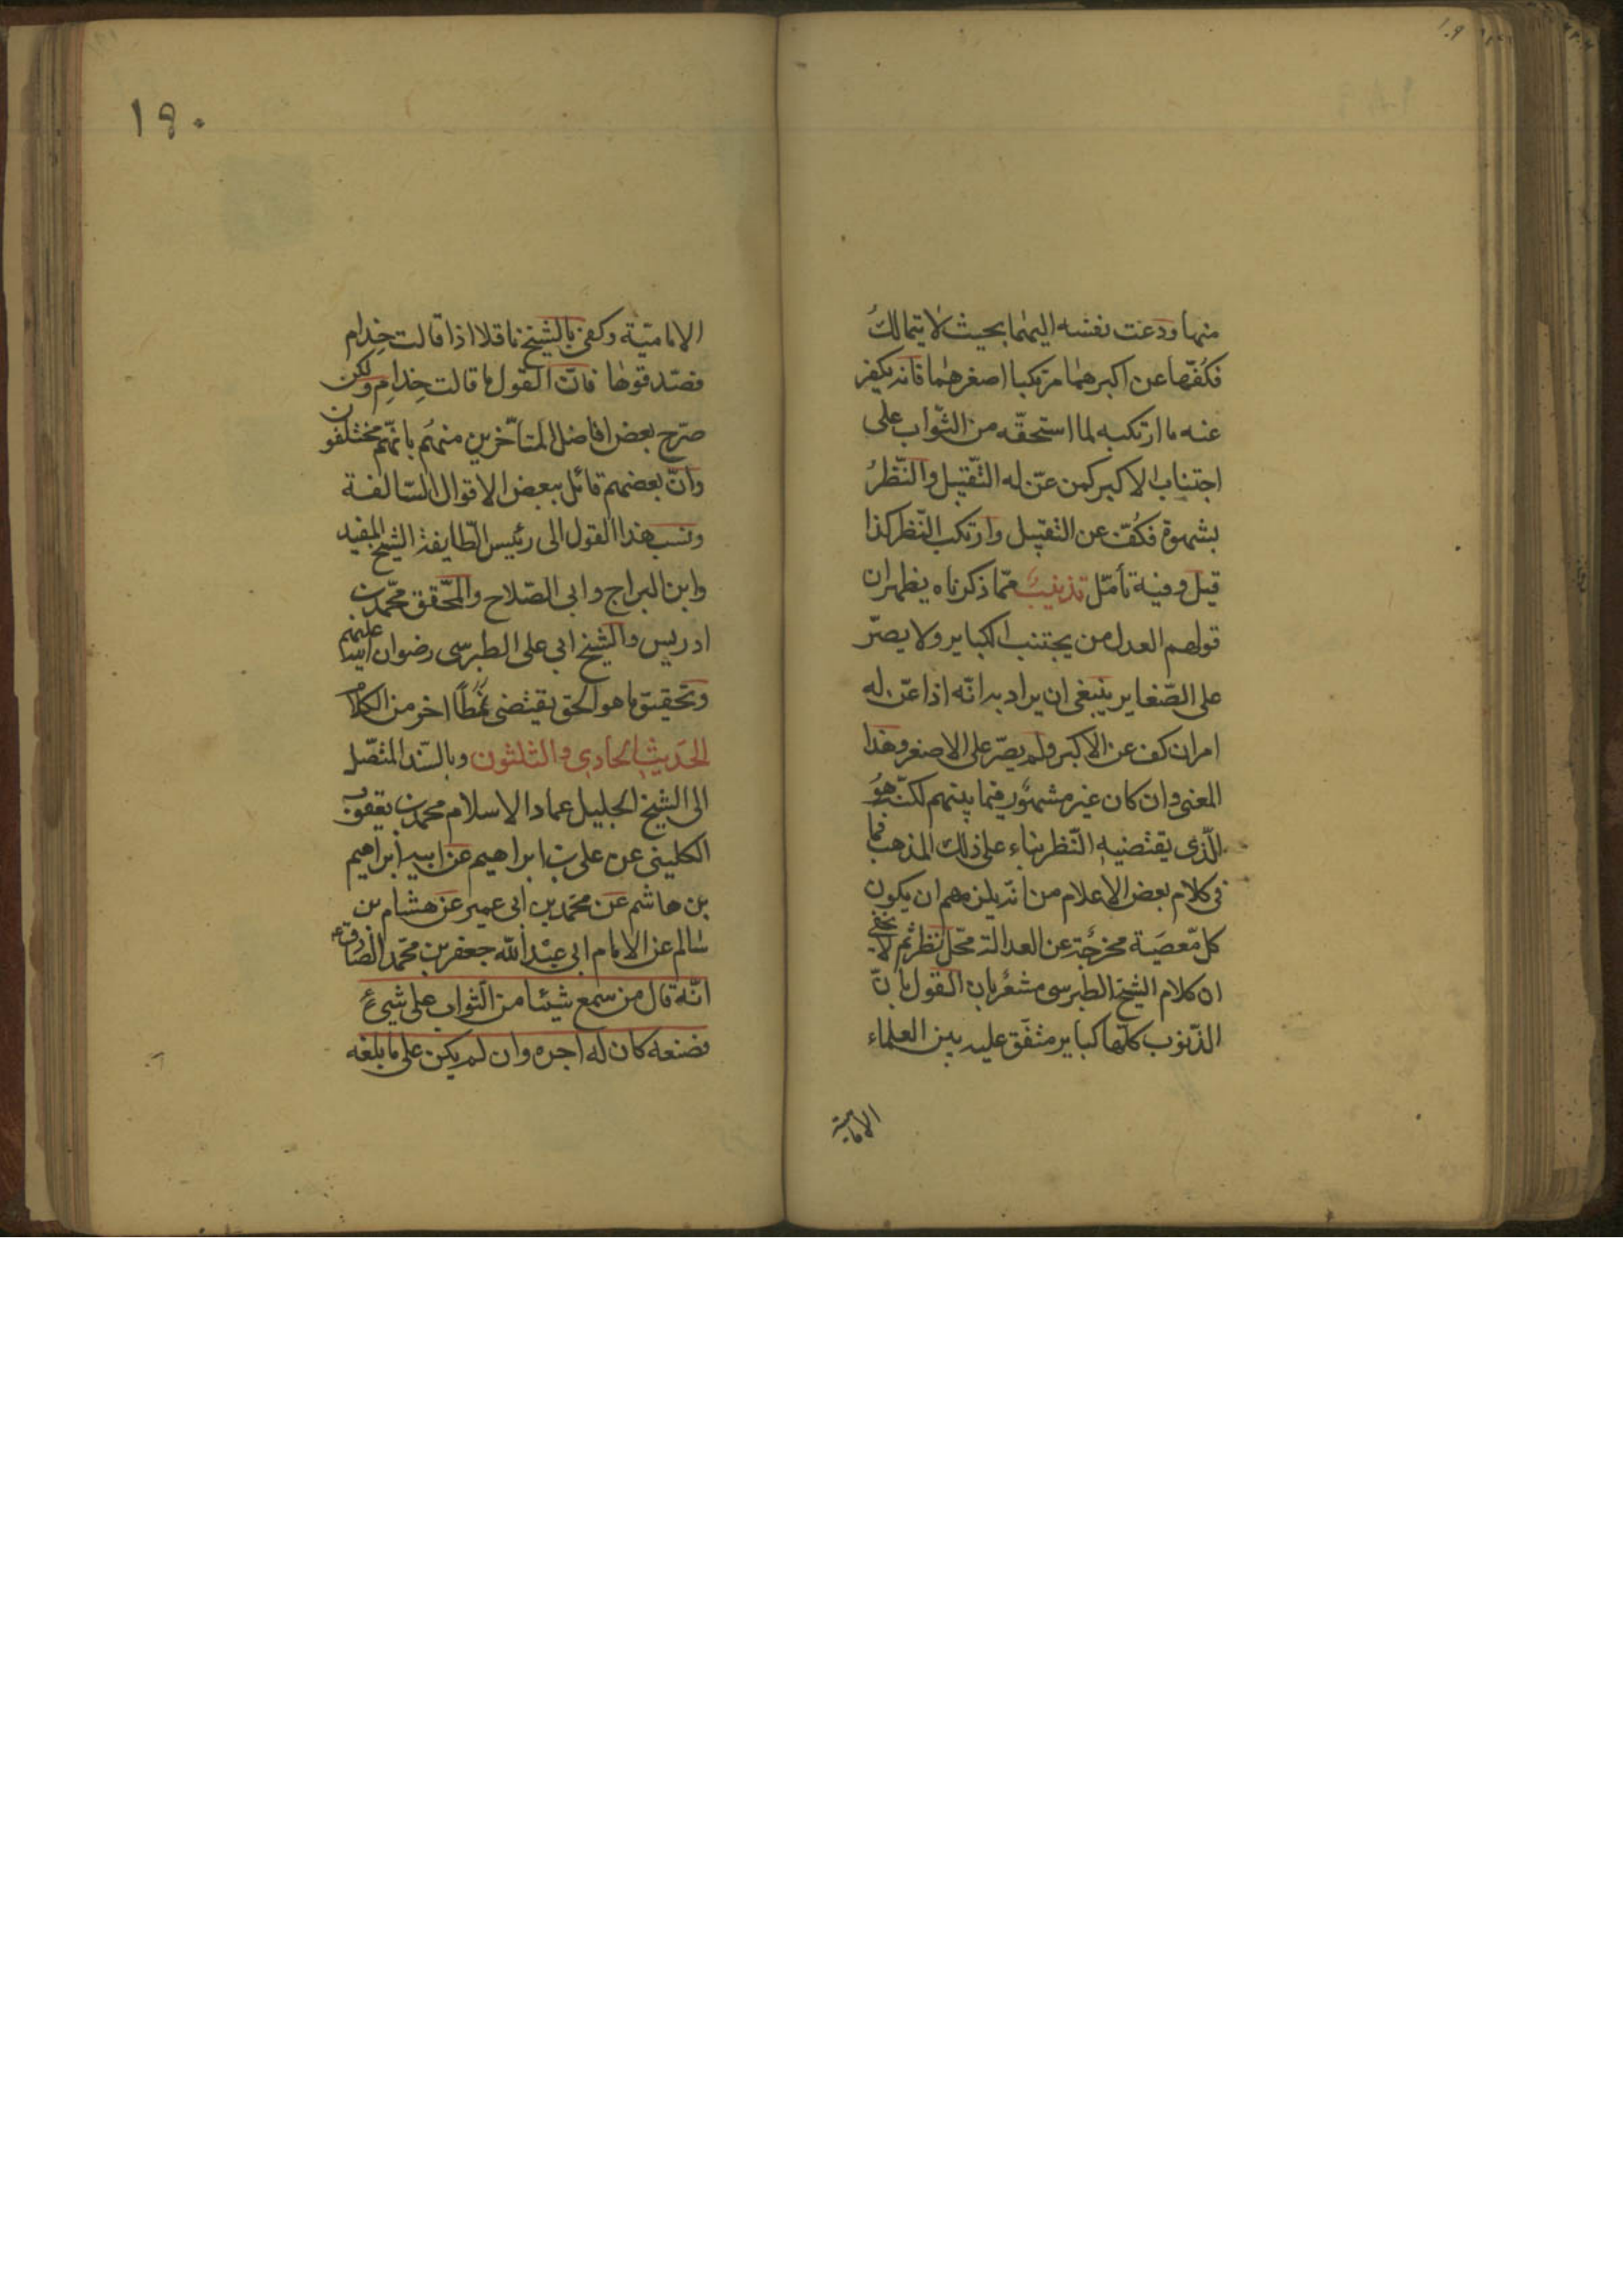 منها ودعت نفسه اليهما بحيث لا يتمالك
فكفّها عن اكبرهما مرتكبا اصغرهما فانه يكفر
عنه ما ارتكبه لما استحقّه من الثّواب على
اجتناب الاكبر كمن عنّ له التّقبيل والنّظرُ
بشهوة فكفّ عن التقبيل وارتكب النّظر كذا
قيل وفيه تأمّل تذنيب ممّا ذكرناه يظهر ان
قولهم العدل من يجتنب الكباير ولا يصرّ
على الصّغاير ينبغى ان يراد به انّه اذا عنّ له
امران كف عن الاكبر ولم يصرّ على الاصغر وهذا
المعنى وان كان غير مشهور فيما بينهم لكنّه هو
الّذى يقتضيه النّظر بناء على ذلك المذهب فما
فى كلام بعض الاعلام من انّه يلزمهم ان يكون
كل معصية مخرجة عن العدالة محّل نظر ثم لا يخفى
ان كلام الشيخ الطبرسى مشعر بان القول بانّ
الذّنوب كلّها كباير متفق عليه بين العلماء
الامامية
١٩٠
الاماميّة وكفى بالشيخ ناقلا اذا قالت حِذام
فصدّقوها فانّ القول ما قالت حِذامِ ولكن
صرّح بعض افاضل المتأخّرين منهُم بانّهم مختلفون
وانّ بعضهم قائل ببعض الاقوال السّالفة
ونسب هذا القول الى رئيس الطّايفة الشيخ المفيد
وابن البراج وابى الصّلاح والمحّقق محمّد بن
ادريس والشيخ ابى على الطبرسى رضوان الله عليهم
وتحقيق ما هو الحق يقتضى نمطًا اخر من الكلام
الحديث الحادى والثلثون وبالسّند المتصّل
الى الشيخ الجليل عماد الاسلام محمد بن يعقوب
الكلينى عن على بن ابراهيم عن ابيه ابراهيم
بن هاشم عن محمّد بن ابى عمير عن هشام بن
سالم عن الامام ابى عبد الله جعفر بن محمّد الصّادق ع
انّه قال من سمع شيئا من الثّواب على شىء
فصنعه كان له اجره وان لم يكن على ما بلغه